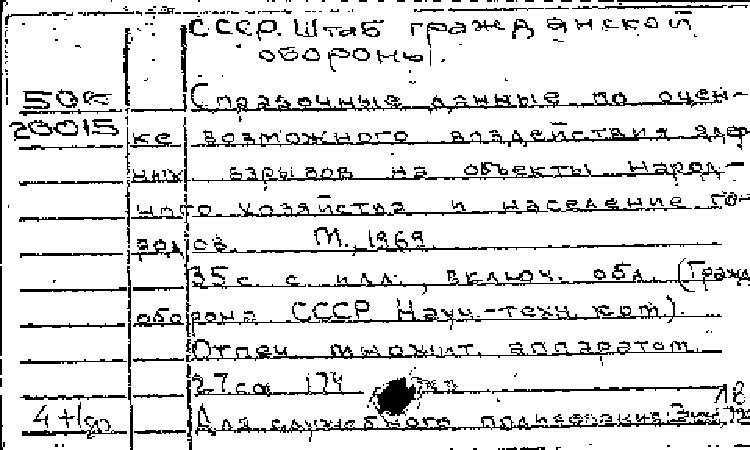 СССР. Штаб гражданской
обороны.
50к Справочные данные по оцен-
20015 ке возможного воздействия ядер
ных взрывов на объекты народ-
ного хозяйства и население го-
родов. М., 1969.
35 с. с илл., включ. обл. (Гражд.
оборона СССР Науч.-техн. ком).
Отпеч. множит. аппаратом
27 см 174
18
4+1 Для служебного пользования.